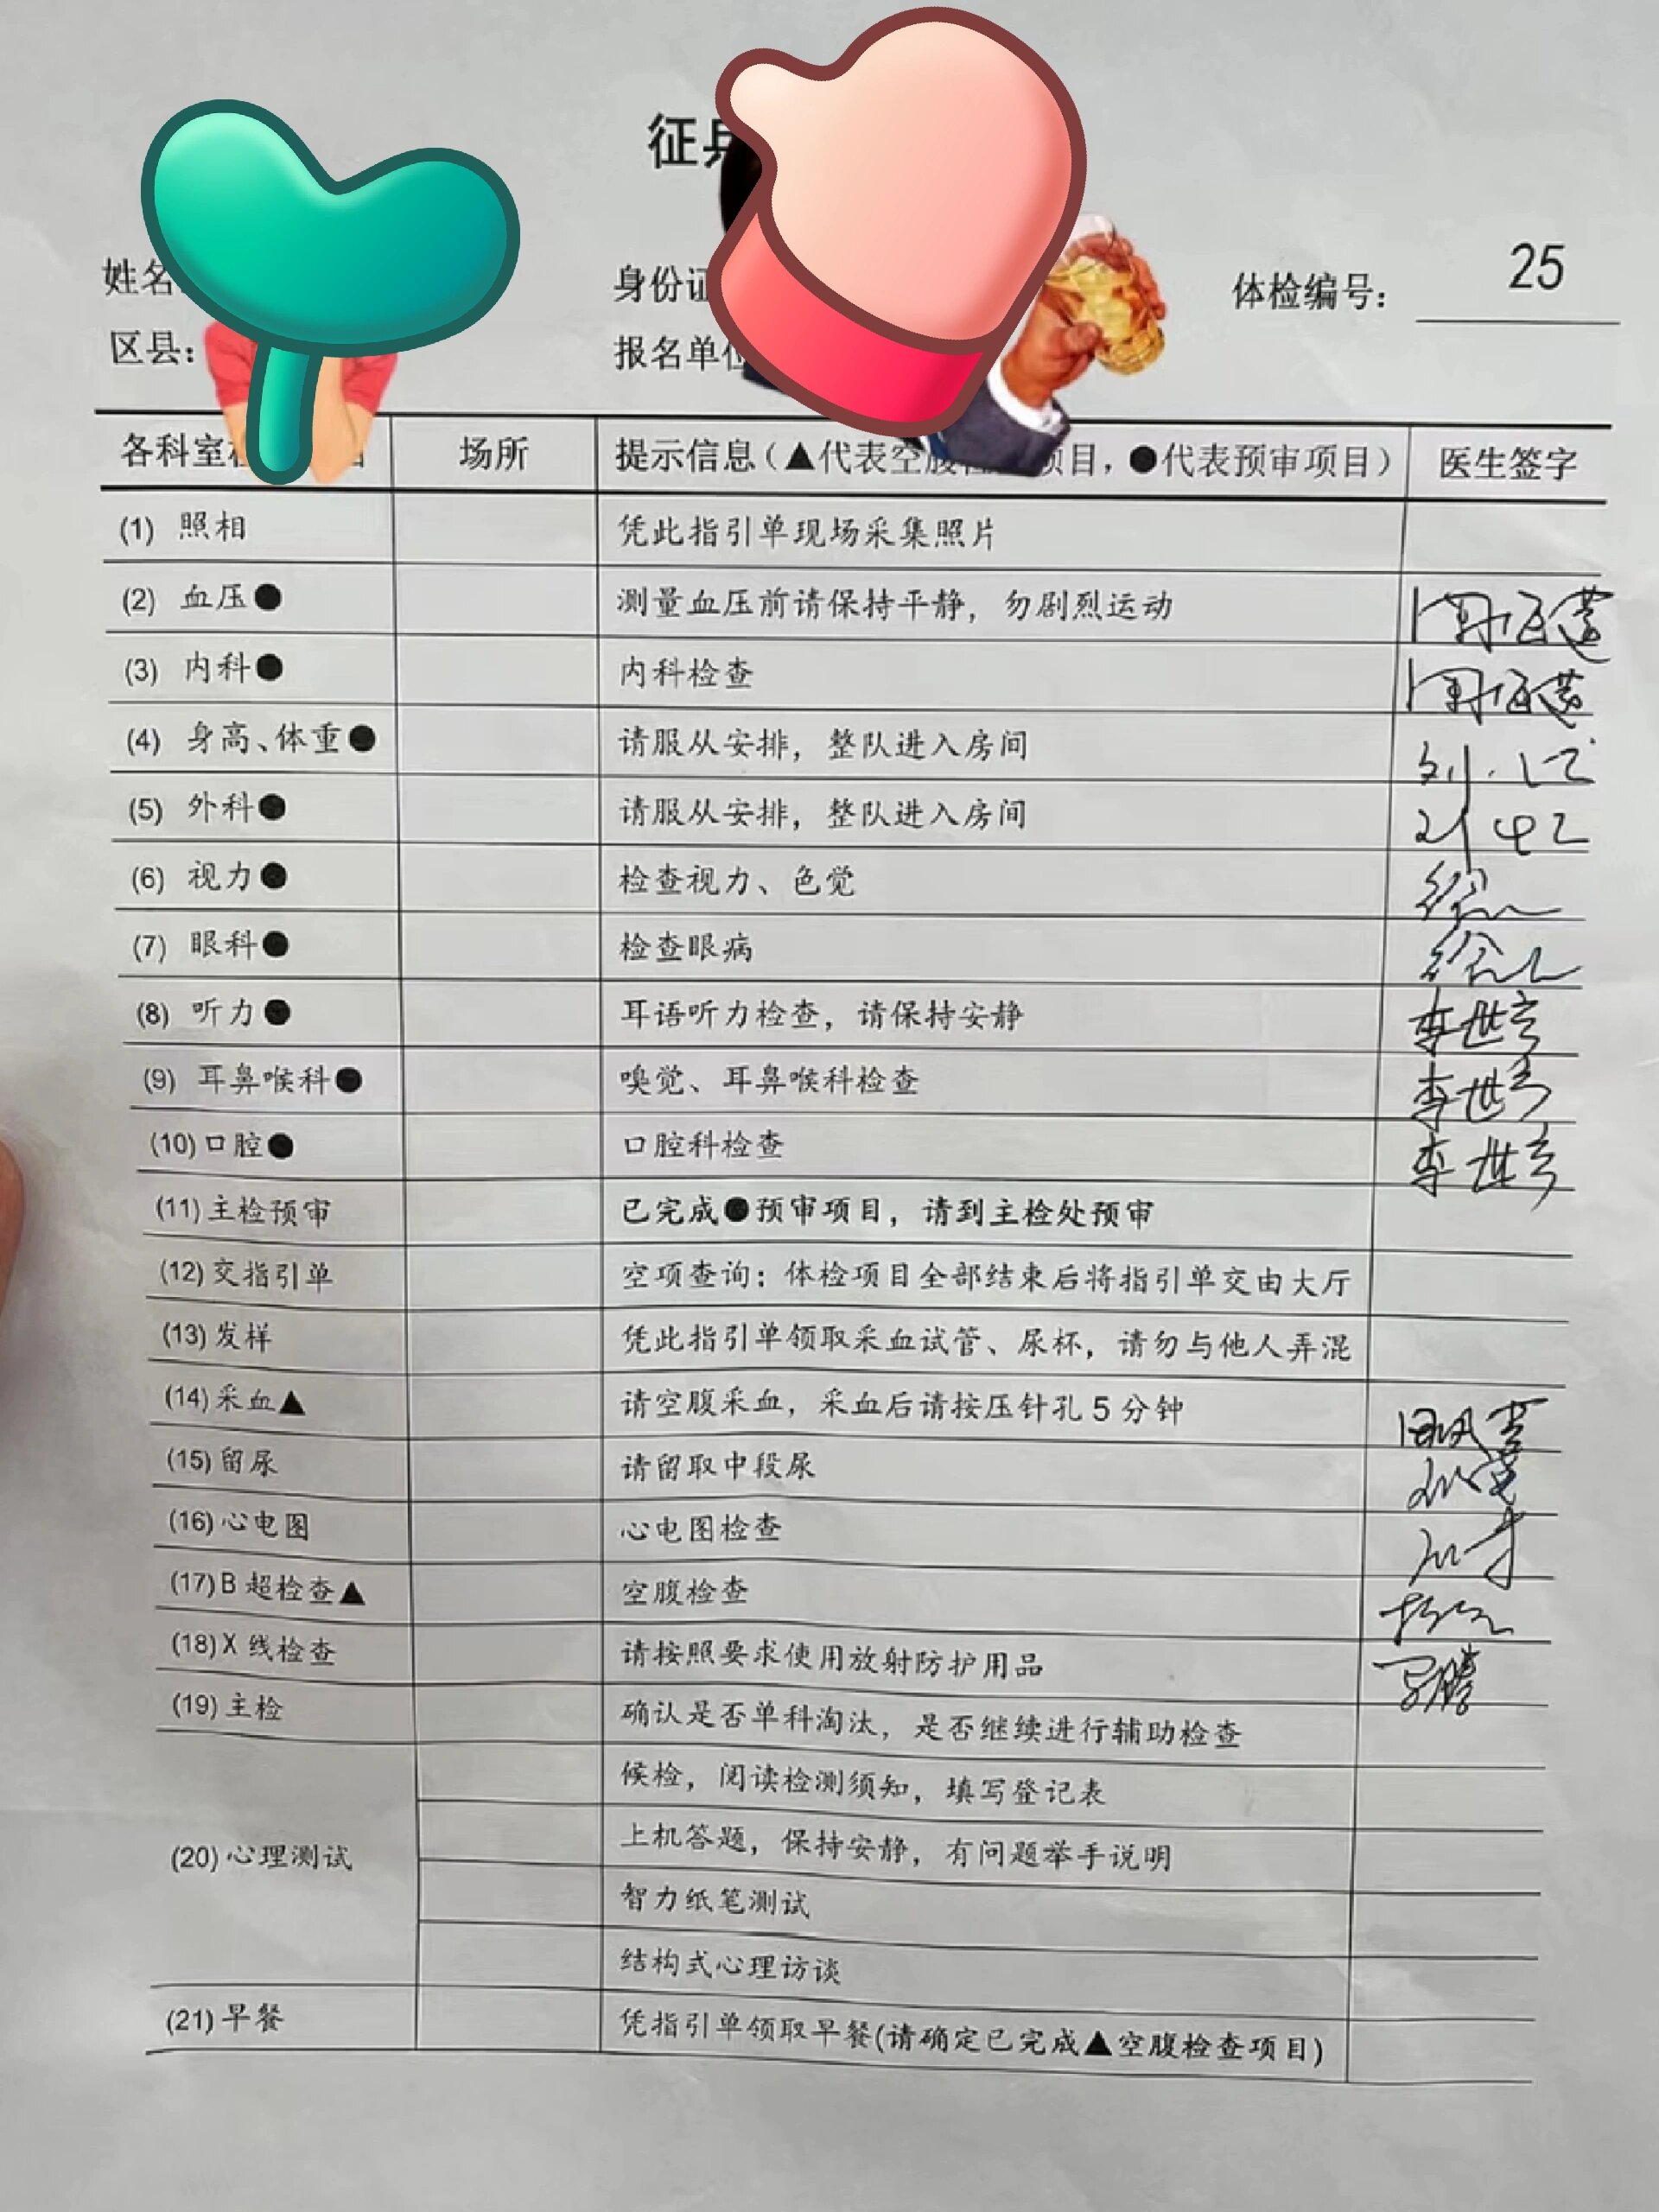 征兵
姓名
身份证
体检编号: 25
区县:
报名单位
各科室 场所 提示信息(▲代表空腹 项目,●代表预审项目) 医生签字
(1) 照相 凭此指引单现场采集照片
(2) 血压● 测量血压前请保持平静,勿剧烈运动
(3) 内科● 内科检查
(4) 身高、体重● 请服从安排,整队进入房间
(5) 外科● 请服从安排,整队进入房间
(6) 视力● 检查视力、色觉
(7) 眼科● 检查眼病
(8) 听力● 耳语听力检查,请保持安静
(9) 耳鼻喉科● 嗅觉、耳鼻喉科检查
(10) 口腔● 口腔科检查
(11) 主检预审 已完成●预审项目,请到主检处预审
(12) 交指引单 空项查询:体检项目全部结束后将指引单交由大厅
(13) 发样 凭此指引单领取采血试管、尿杯,请勿与他人弄混
(14) 采血▲ 请空腹采血,采血后请按压针孔 5 分钟
(15) 留尿 请留取中段尿
(16) 心电图 心电图检查
(17) B 超检查▲ 空腹检查
(18) X 线检查 请按照要求使用放射防护用品
(19) 主检 确认是否单科淘汰,是否继续进行辅助检查
(20) 心理测试 候检,阅读检测须知,填写登记表
上机答题,保持安静,有问题举手说明
智力纸笔测试
结构式心理访谈
(21) 早餐 凭指引单领取早餐(请确定已完成▲空腹检查项目)